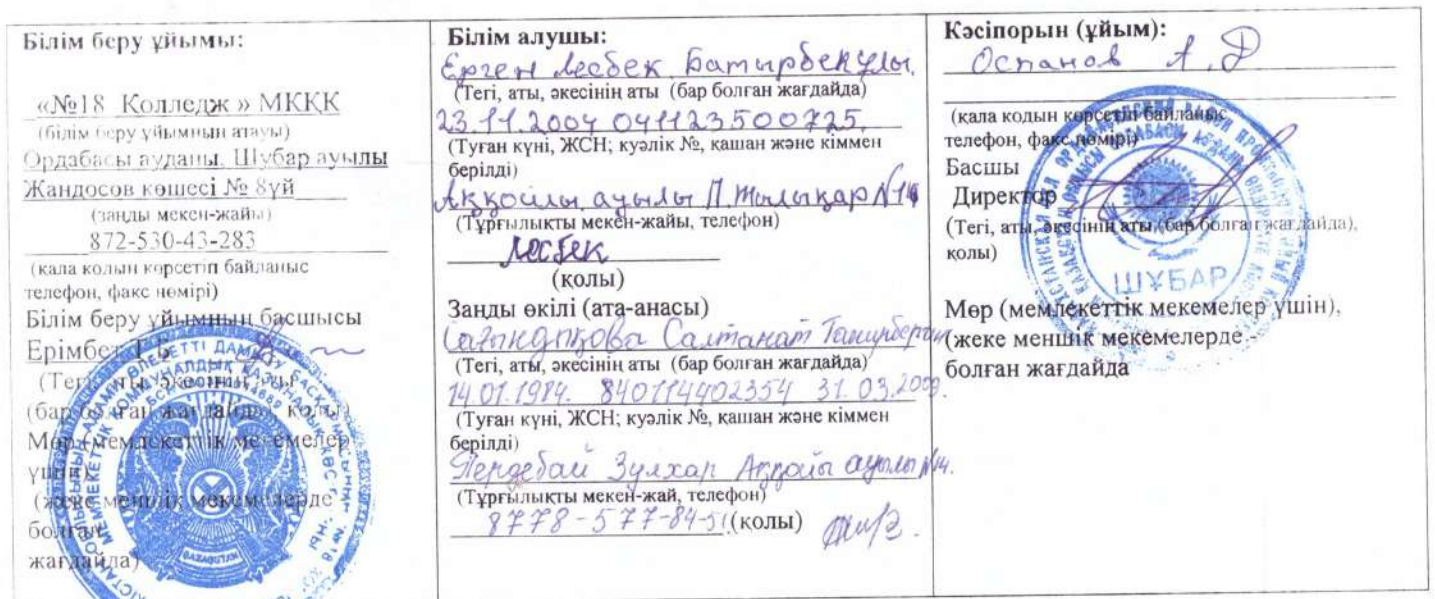 Білім беру ұйымы:
«№18 Колледж » МКҚК
(білім беру ұйымның атауы)
Ордабасы ауданы, Шұбар ауылы
Жандосов көшесі № 8үй
(заңды мекен-жайы)
872-530-43-283
(кала кодын көрсетіп байланыс
телефон, факс нөмірі)
Білім беру ұйымның басшысы
Ерімбет
(Тегі, аты, әкесінің аты
(бар болған жағдайда), қолы)
Мөр (мемлекеттік мекемелер
үшін),
(жеке меншік мекемелерде
болған
жағдайда)
Білім алушы:
Ерген Лесбек Батырбекұлы
(Тегі, аты, әкесінің аты (бар болған жағдайда)
23.11.2004 041123500725.
(Туған күні, ЖСН; куәлік №, қашан және кіммен
берілді)
Аққойлы ауылы П. №14
(Тұрғылықты мекен-жайы, телефон)
Лесбек
(қолы)
Заңды өкілі (ата-анасы)
Салтанат
(Тегі, аты, әкесінің аты (бар болған жағдайда)
14.01.1984. 840114402354 31.03.2009.
(Туған күні, ЖСН; куәлік №, қашан және кіммен
берілді)
Зулхар ауылы №14.
(Тұрғылықты мекен-жай, телефон)
8778-577-84-51 (қолы)
Кәсіпорын (ұйым):
Оспанов А.Д
(кала кодын көрсетіп байланыс
телефон, факс нөмірі)
Басшы
Директор
(Тегі, аты, әкесінің аты (бар болған жағдайда),
қолы)
ШҰБАР
Мөр (мемлекеттік мекемелер үшін),
(жеке меншік мекемелерде -
болған жағдайда